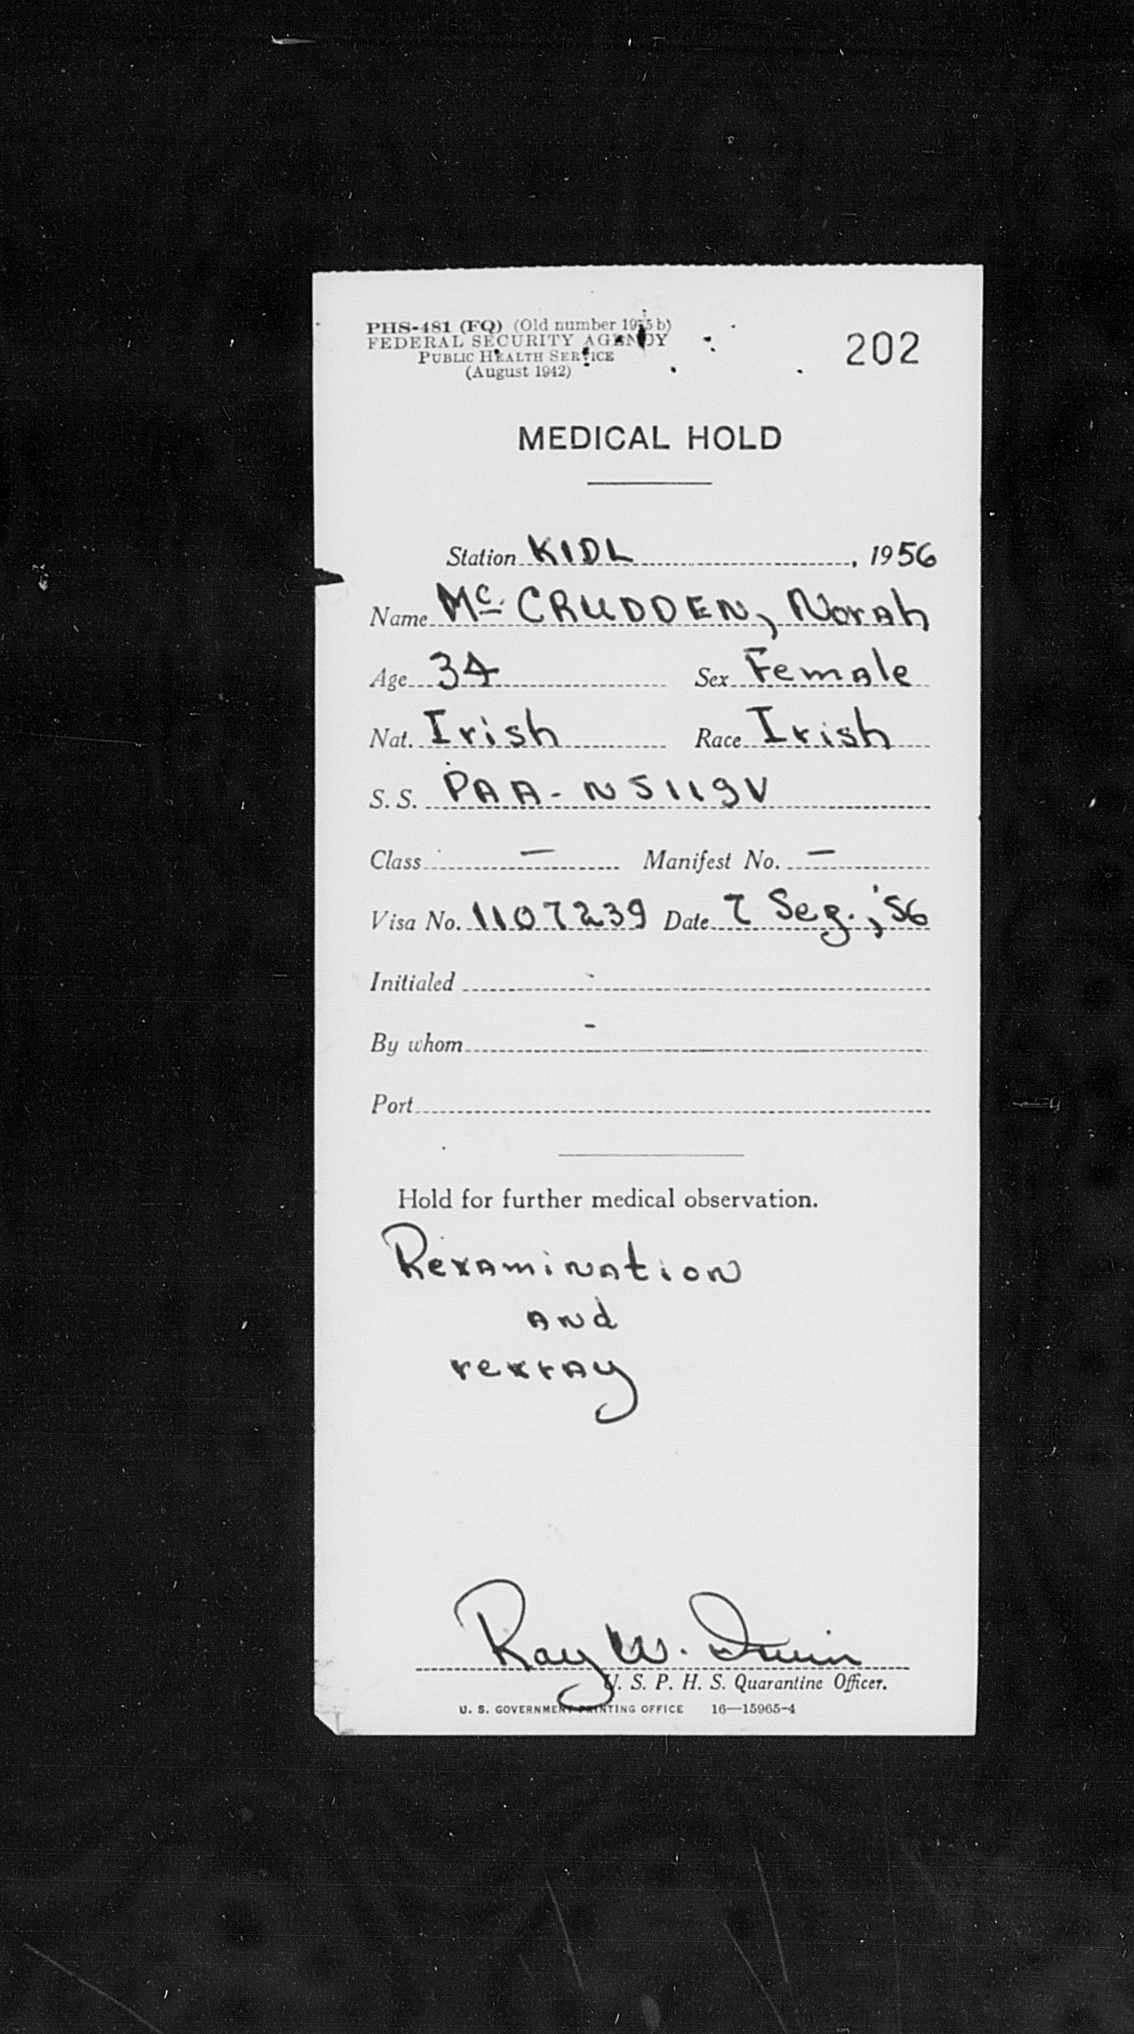 PHS-481 (FQ) (Old number 1975b)
FEDERAL SECURITY AGENCY
PUBLIC HEALTH SERVICE
(August 1942)
202
MEDICAL HOLD
Station KIDL, 1956
Name Mc. CRUDDEN, Norah
Age 34 Sex Female
Nat. Irish Race Irish
S. S. PAA - N5119V
Class — Manifest No. —
Visa No. 1107239 Date 7 Seg., '56
Initialed -
By whom -
Port
Hold for further medical observation.
Rexamination
and
rexray
Ray W.
U. S. P. H. S. Quarantine Officer.
U. S. GOVERNMENT PRINTING OFFICE 16—15965-4